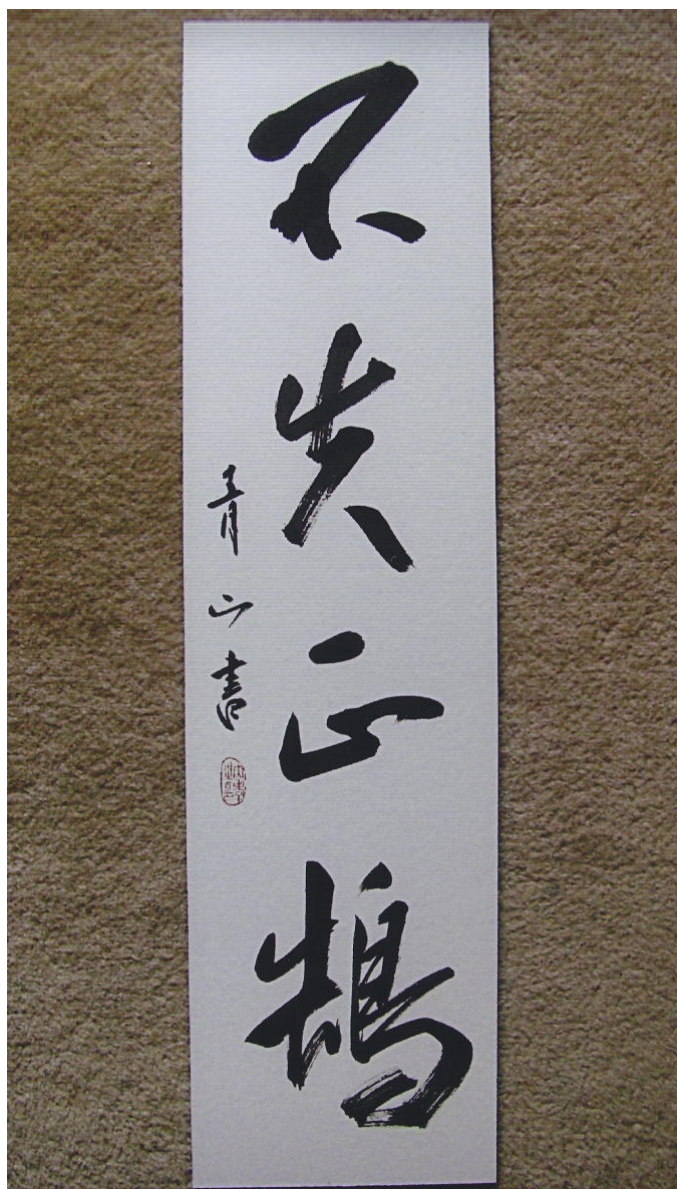 不失正鵠
青山書